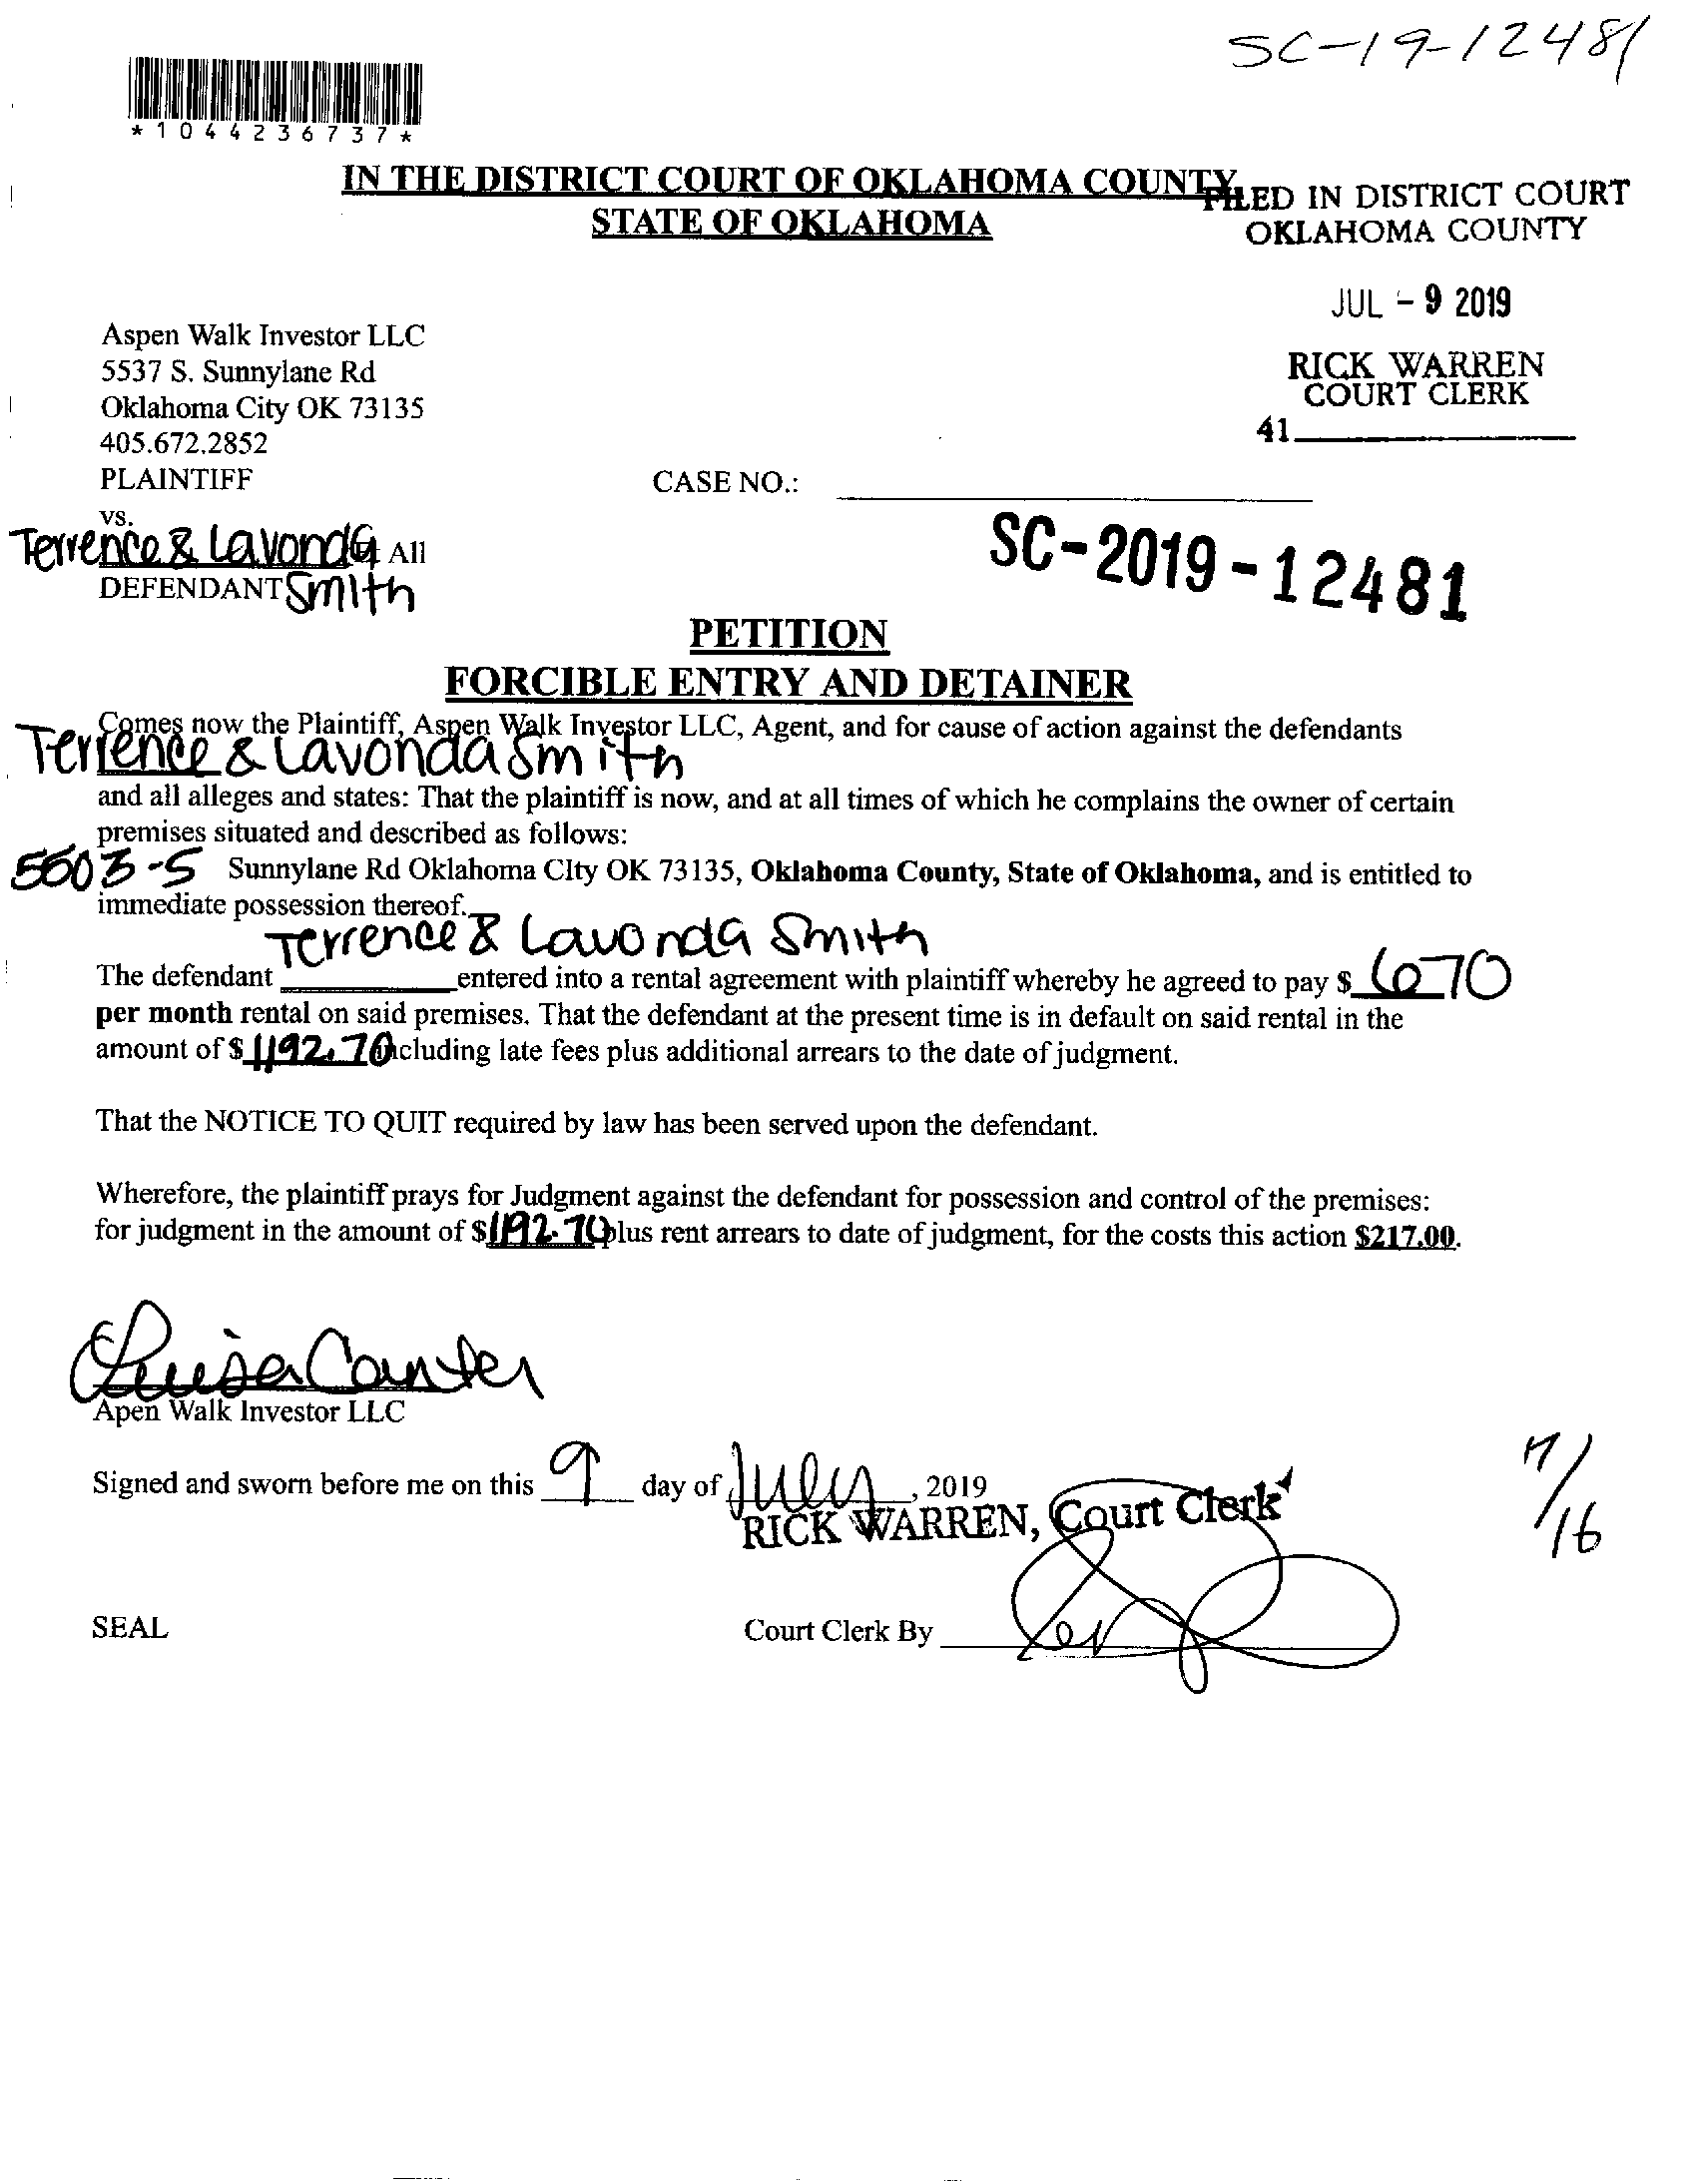 SC-19-12481
*1044236737*
IN THE DISTRICT COURT OF OKLAHOMA COUNTY
STATE OF OKLAHOMA
FILED IN DISTRICT COURT
OKLAHOMA COUNTY
JUL - 9 2019
RICK WARREN
COURT CLERK
41
Aspen Walk Investor LLC
5537 S. Sunnylane Rd
Oklahoma City OK 73135
405.672.2852
PLAINTIFF
CASE NO.:
vs.
Terrence & Lavonda All
DEFENDANT Smith
SC-2019-12481
PETITION
FORCIBLE ENTRY AND DETAINER
Comes now the Plaintiff, Aspen Walk Investor LLC, Agent, and for cause of action against the defendants
Terrence & Lavonda Smith
and all alleges and states: That the plaintiff is now, and at all times of which he complains the owner of certain
premises situated and described as follows:
5503-S Sunnylane Rd Oklahoma CIty OK 73135, Oklahoma County, State of Oklahoma, and is entitled to
immediate possession thereof.
Terrence & Lavonda Smith
The defendant entered into a rental agreement with plaintiff whereby he agreed to pay $ 670
per month rental on said premises. That the defendant at the present time is in default on said rental in the
amount of $ 1192.70 including late fees plus additional arrears to the date of judgment.
That the NOTICE TO QUIT required by law has been served upon the defendant.
Wherefore, the plaintiff prays for Judgment against the defendant for possession and control of the premises:
for judgment in the amount of $1192.70 plus rent arrears to date of judgment, for the costs this action $217.00.
Apen Walk Investor LLC
Signed and sworn before me on this 9 day of July, 2019
RICK WARREN, Court Clerk
7/16
SEAL
Court Clerk By